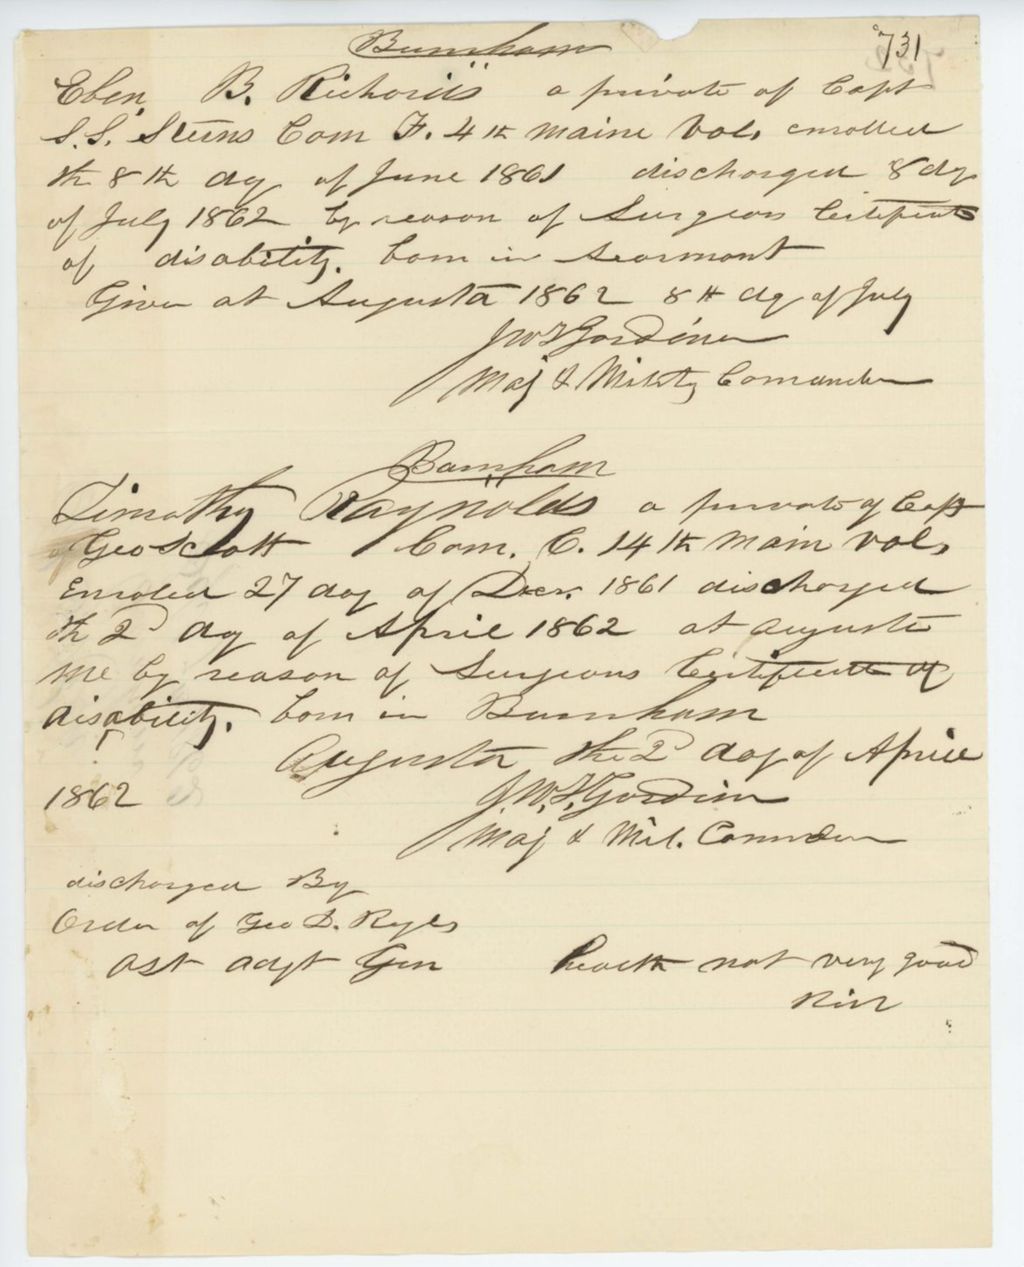 731
Burnham
Eben B. Richards a private of Capt
S.S. Com F. 4th Maine Vol. enrolled
th 8th day of June 1861 discharged 8 day
of July 1862 by reason of Surgeons Certificate
of disability. born in Searmont
Given at Augusta 1862 8th day of July
JWT Gardiner
Maj & Comander
Burnham
Timothy Raynolds a private of Capt
Geo Scott Com. C. 14th Main Vol.
Enroled 27 day of Decr. 1861 discharged
th 2d day of April 1862 at Augusta
Me by reason of Surgeons Certificate of
disability. born in Burnham
Augusta the 2d day of April
1862 J.W.T. Gardiner
Maj & Mil. Commder
discharged By
Order of Geo D.
Ast adgt Gen health not very good